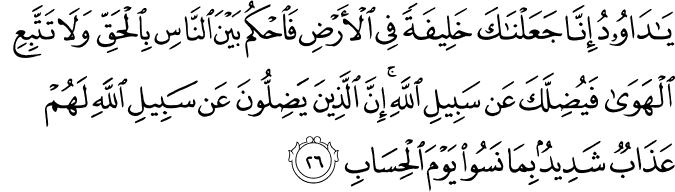 يَٰدَاوُۥدُ إِنَّا جَعَلْنَٰكَ خَلِيفَةً فِى ٱلْأَرْضِ فَٱحْكُم بَيْنَ ٱلنَّاسِ بِٱلْحَقِّ وَلَا تَتَّبِعِ
ٱلْهَوَىٰ فَيُضِلَّكَ عَن سَبِيلِ ٱللَّهِ ۚ إِنَّ ٱلَّذِينَ يَضِلُّونَ عَن سَبِيلِ ٱللَّهِ لَهُمْ
عَذَابٌ شَدِيدٌۢ بِمَا نَسُوا۟ يَوْمَ ٱلْحِسَابِ ٢٦